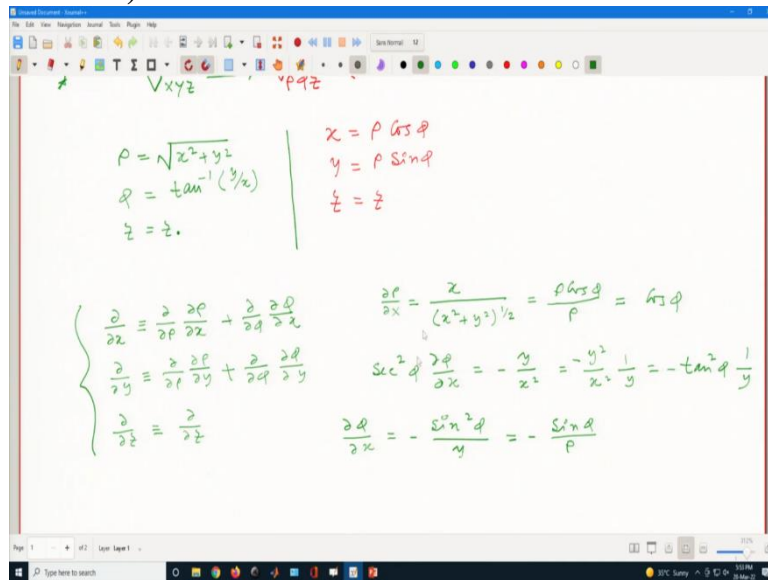 Unsaved Document - Xournal++
File Edit View Navigation Journal Tools Plugin Help
Sans Normal 12
∇xyz ∇ρφz
ρ = √x²+y²
φ = tan⁻¹(y/x)
z = z.
x = ρ cosφ
y = ρ sinφ
z = z
∂/∂x ≡ ∂/∂ρ ∂ρ/∂x + ∂/∂φ ∂φ/∂x
∂/∂y ≡ ∂/∂ρ ∂ρ/∂y + ∂/∂φ ∂φ/∂y
∂/∂z ≡ ∂/∂z
∂ρ/∂x = x/(x²+y²)^1/2 = ρcosφ/ρ = cosφ
sec²φ ∂φ/∂x = - y/x² = -y²/x² 1/y = - tan²φ 1/y
∂φ/∂x = - sin²φ/y = - sinφ/ρ
Page 1 of 2 Layer Layer 1
Type here to search
35°C Sunny
5:53 PM